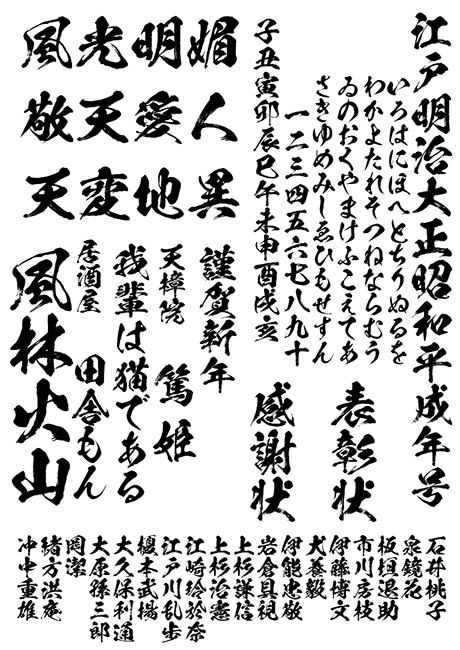 江戸明治大正昭和平成年号
いろはにほへとちりぬるを
わかよたれそつねならむう
ゐのおくやまけふこえてあ
さきゆめみしゑひもせすん
一二三四五六七八九十
子丑寅卯辰巳午未申酉戌亥
表彰状
感謝状
風光明媚
敬天愛人
天変地異
謹賀新年
天樟院 篤姫
我輩は猫である
居酒屋 田舎もん
風林火山
石井桃子
泉鏡花
板垣退助
市川房枝
伊藤博文
犬養毅
伊能忠敬
岩倉具視
上杉謙信
上杉治憲
江崎玲於奈
江戸川乱歩
榎本武揚
大久保利通
大原孫三郎
岡潔
緒方洪庵
沖中重雄